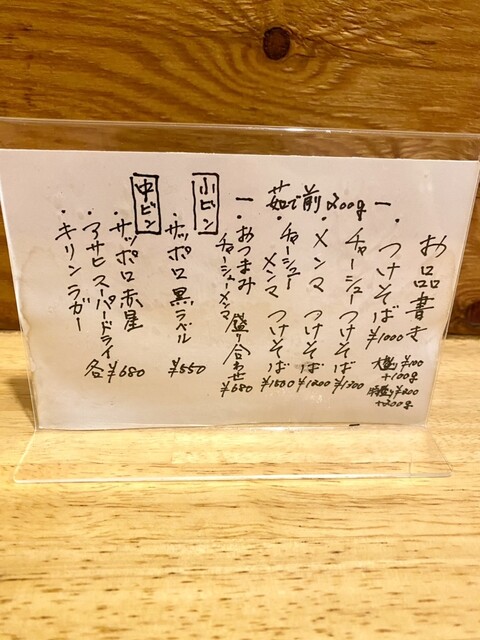 お品書き
ー 茹で前200g ー
・つけそば ¥1000
大盛り ¥100
+100g
特盛り ¥200
+200g
・チャーシューつけそば ¥1300
・メンマつけそば ¥1200
・チャーシューメンマつけそば ¥1500
・おつまみ
チャーシューメンマ盛り合わせ ¥680
小ビン
・サッポロ黒ラベル ¥550
中ビン
・サッポロ赤星
・アサヒスーパードライ 各¥680
・キリンラガー